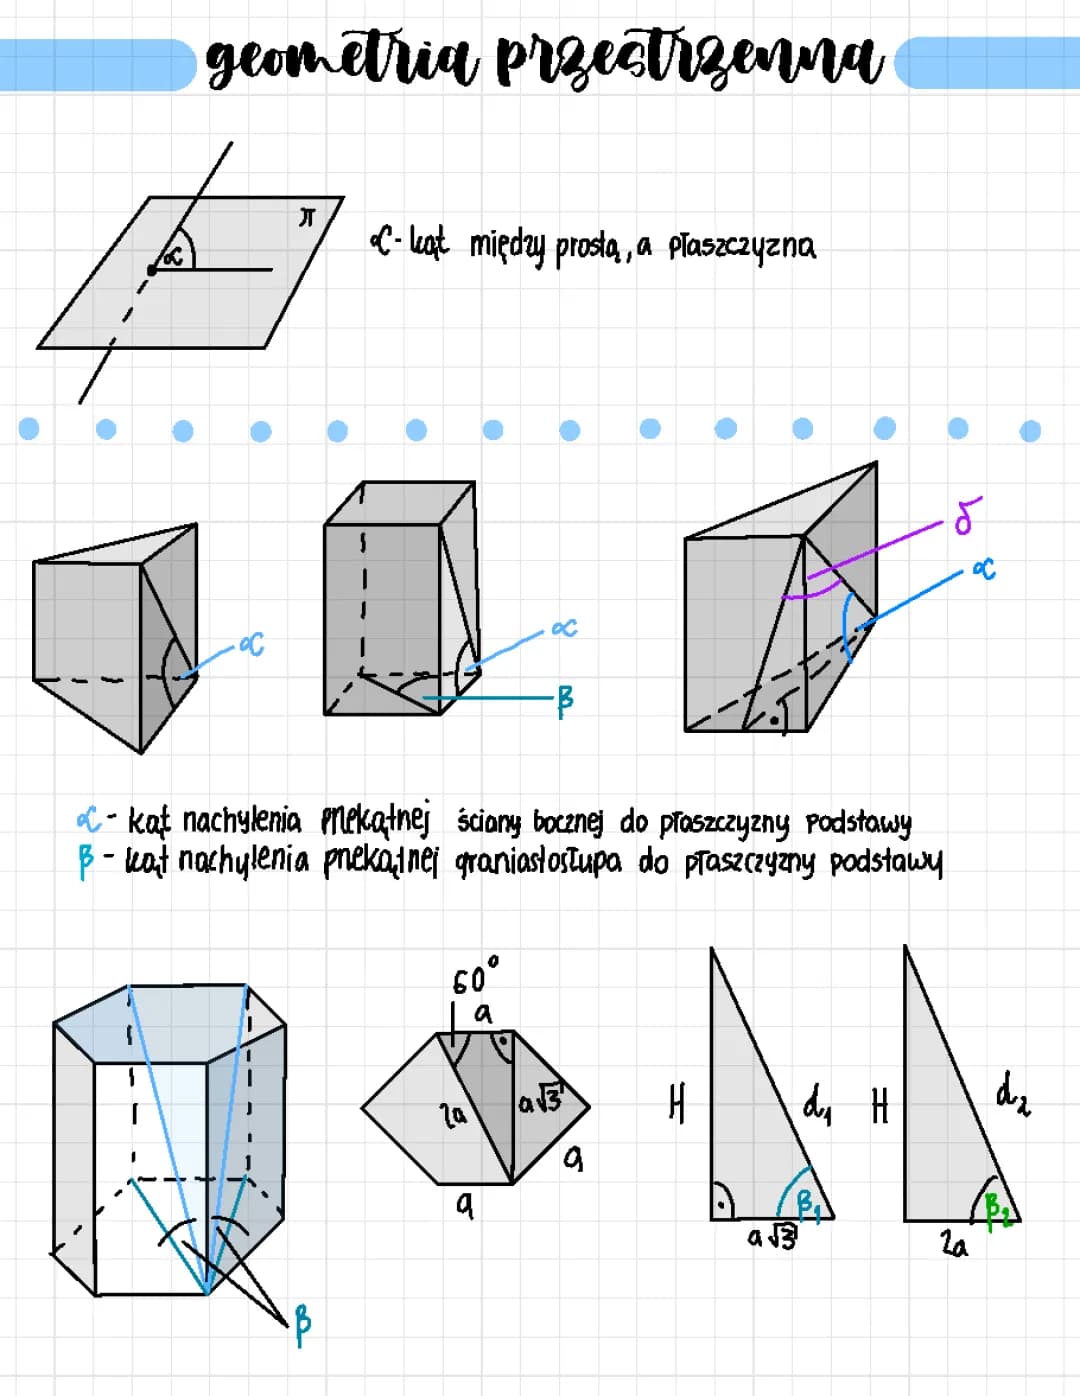 geometria przestrzenna
π
α
α- kąt między prostą, a płaszczyzna
δ
α
α
α
β
α- kąt nachylenia przekątnej ściany bocznej do płaszczyzny podstawy
β - kąt nachylenia przekątnej graniastosłupa do płaszczyzny podstawy
60°
a
2a
a√3
a
a
H
d₁
β₁
a√3
H
d₂
β₂
2a
β